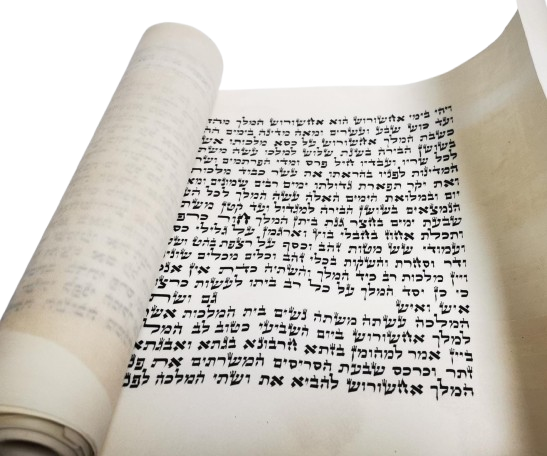 ויהי בימי אחשורוש הוא אחשורוש המלך
ועד כוש שבע ועשרים ומאה מדינה בימים
כשבת המלך אחשורוש על כסא מלכותו
בשושן הבירה בשנת שלוש למלכו עשה
לכל שריו ועבדיו חיל פרס ומדי הפרתמים
המדינות לפניו בהראתו את עשר כבוד
ואת יקר תפארת גדולתו ימים רבים שמונים
יום ובמלואת הימים האלה עשה המלך לכל
הנמצאים בשושן הבירה למגדול ועד קטן
שבעת ימים בחצר גנת ביתן המלך חור
ותכלת אחוז בחבלי בוץ וארגמן על גלילי
ועמודי שש מטות זהב וכסף על רצפת בהט
ודר וסחרת והשקות בכלי זהב וכלים מכלים
ויין מלכות רב כיד המלך והשתיה כדת אין
כי כן יסד המלך על כל רב ביתו לעשות
איש ואיש גם
המלכה עשתה משתה נשים בית המלכות
למלך אחשורוש ביום השביעי כטוב לב
ביין אמר למהומן בזתא חרבונא בגתא
זתר וכרכס שבעת הסריסים המשרתים את
המלך אחשורוש להביא את ושתי המלכה